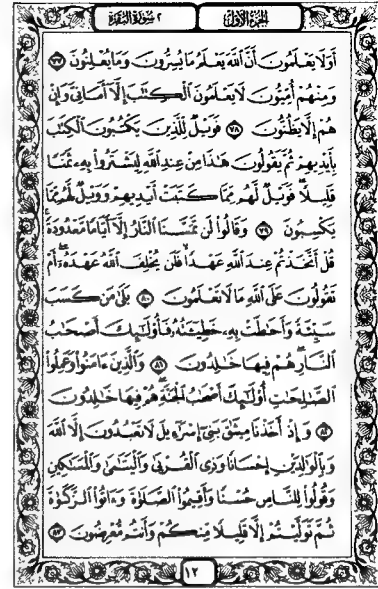 الجزء الأول
٢ سورة البقرة
أَوَلَا يَعْلَمُونَ أَنَّ ٱللَّهَ يَعْلَمُ مَا يُسِرُّونَ وَمَا يُعْلِنُونَ ٧٧
وَمِنْهُمْ أُمِّيُّونَ لَا يَعْلَمُونَ ٱلْكِتَٰبَ إِلَّآ أَمَانِىَّ وَإِنْ
هُمْ إِلَّا يَظُنُّونَ ٧٨ فَوَيْلٌ لِّلَّذِينَ يَكْتُبُونَ ٱلْكِتَٰبَ
بِأَيْدِيهِمْ ثُمَّ يَقُولُونَ هَٰذَا مِنْ عِندِ ٱللَّهِ لِيَشْتَرُوا۟ بِهِۦ ثَمَنًا
قَلِيلًا فَوَيْلٌ لَّهُم مِّمَّا كَتَبَتْ أَيْدِيهِمْ وَوَيْلٌ لَّهُم مِّمَّا
يَكْسِبُونَ ٧٩ وَقَالُوا۟ لَن تَمَسَّنَا ٱلنَّارُ إِلَّآ أَيَّامًا مَّعْدُودَةً
قُلْ أَتَّخَذْتُمْ عِندَ ٱللَّهِ عَهْدًا فَلَن يُخْلِفَ ٱللَّهُ عَهْدَهُۥٓ أَمْ
تَقُولُونَ عَلَى ٱللَّهِ مَا لَا تَعْلَمُونَ ٨٠ بَلَىٰ مَن كَسَبَ
سَيِّئَةً وَأَحَٰطَتْ بِهِۦ خَطِيٓـَٔتُهُۥ فَأُو۟لَٰٓئِكَ أَصْحَٰبُ
ٱلنَّارِ هُمْ فِيهَا خَٰلِدُونَ ٨١ وَٱلَّذِينَ ءَامَنُوا۟ وَعَمِلُوا۟
ٱلصَّٰلِحَٰتِ أُو۟لَٰٓئِكَ أَصْحَٰبُ ٱلْجَنَّةِ هُمْ فِيهَا خَٰلِدُونَ
٨٢ وَإِذْ أَخَذْنَا مِيثَٰقَ بَنِىٓ إِسْرَٰٓءِيلَ لَا تَعْبُدُونَ إِلَّا ٱللَّهَ
وَبِٱلْوَٰلِدَيْنِ إِحْسَانًا وَذِى ٱلْقُرْبَىٰ وَٱلْيَتَٰمَىٰ وَٱلْمَسَٰكِينِ
وَقُولُوا۟ لِلنَّاسِ حُسْنًا وَأَقِيمُوا۟ ٱلصَّلَوٰةَ وَءَاتُوا۟ ٱلزَّكَوٰةَ
ثُمَّ تَوَلَّيْتُمْ إِلَّا قَلِيلًا مِّنكُمْ وَأَنتُم مُّعْرِضُونَ ٨٣
١٢